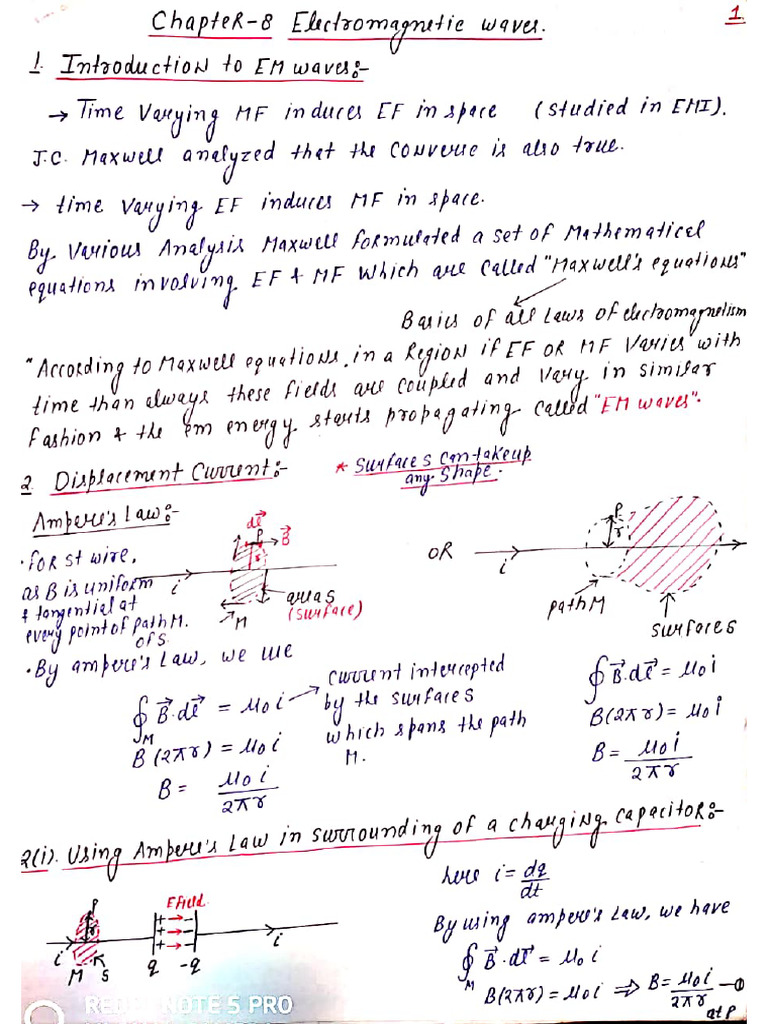 1
Chapter-8 Electromagnetic waves.
1. Introduction to EM waves:-
→ Time Varying MF induces EF in space (studied in EMI).
J.C. Maxwell analyzed that the Converse is also true.
→ time varying EF induces MF in space.
By Various Analysis Maxwell formulated a set of Mathematical
equations involving EF & MF Which are Called "Maxwell's equations"
Basics of all Laws of electromagnetism
"According to Maxwell equations, in a Region if EF OR MF Varies with
time than always these fields are coupled and vary in similar
fashion & the em energy starts propagating called "EM waves".
2. Displacement Current:-
* Surfaces can takeup
any shape.
Ampere's Law:-
• for st wire,
as B is uniform
& tangential at
every point of path M.
of S.
dl⃗
P
B⃗
r
i
area S
(surface)
M
OR
P
r
i
path M
surface S
• By ampere's Law, we use
∮M B⃗.dl⃗ = μ₀i
B(2πr) = μ₀i
B = μ₀i/2πr
current intercepted
by the surface S
which spans the path
M.
∮ B⃗.dl⃗ = μ₀i
B(2πr) = μ₀i
B = μ₀i/2πr
2(i). Using Ampere's Law in surrounding of a charging capacitor:-
here i = dq/dt
By using ampere's Law, we have
∮M B⃗.dl⃗ = μ₀i
B(2πr) = μ₀i ⇒ B = μ₀i/2πr —①
at P
P
r
E Field
+ → −
+ → −
+ → −
i
M
S
q
-q
i
REDMI NOTE 5 PRO